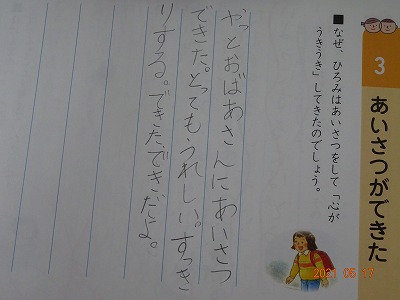 3
あいさつができた
■なぜ、ひろみはあいさつをして「心が
うきうき」してきたのでしょう。
やっとおばあさんにあいさつ
できた。とってもうれしい。すっき
りする。できたできだよ。
2021 05 17